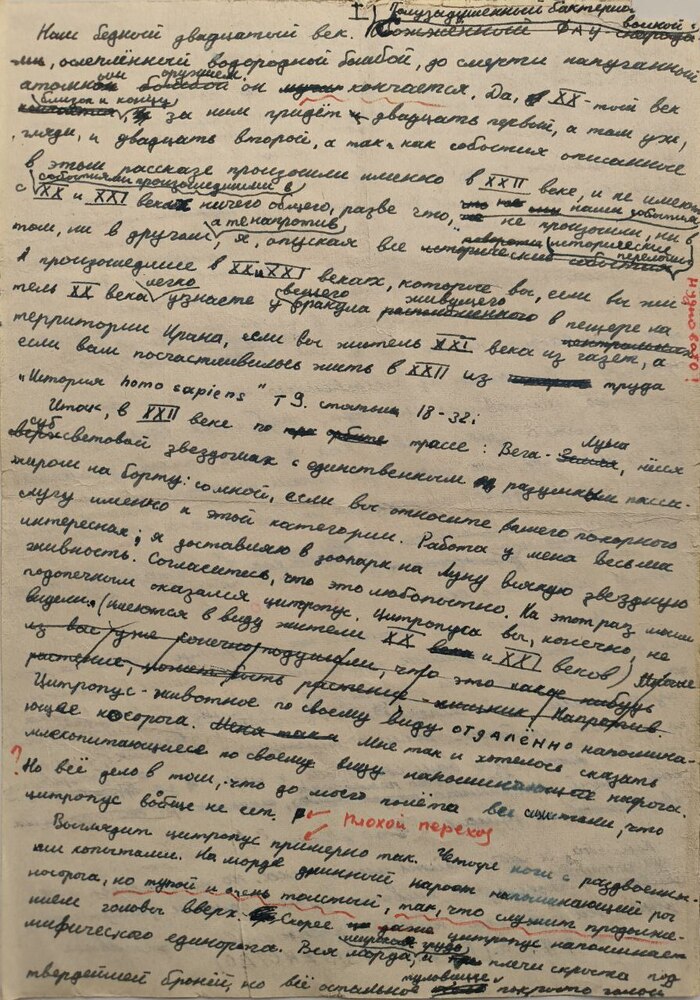 I) Полузадушенный бактерио-
Наш бедный двадцатый век. войной с
ослеплённый водородной бомбой, до смерти напуганный
атомным оружием он кончается. Да, XX-тый век
близок к концу, за ним придёт двадцать первый, а там уж,
гляди, и двадцать второй, а так как события описанное
в этом рассказе произошли именно в XXII веке, и не имеют
событиями произошедшими в
с XX и XXI веках ничего общего, разве что, не произошли, ни в
том, ни в другом, а те напротив, я, опуская все исторические
произошедшее в XX и XXI веках, которые вы, если вы жи-
тель XX века легко узнаете у вещего дракула живущего в пещере на
территории Ирана, если вы житель XXI века из газет, а
Нужно ли?
если вам посчастливилось жить в XXII из труда
"История homo sapiens" т 9. статьи 18-32:
Итак, в XXII веке по трассе: Вега - Луна, нёсся
субсветовой звездолёт с единственным разумным пасса-
жиром на борту: со мной, если вы относите вашего покорного
слугу именно к этой категории. Работа у меня весьма
интересная; я доставляю в зоопарк на Луну всякую звездную
живность. Согласитесь, что это любопытно. На этот раз моим
подопечным оказался цитропус. Цитропуса вы, конечно, не
видели (имеются в виду жители XX и XXI веков)
из вас уже конечно подумали, что это какое нибудь
растение, может быть растение - хищник. Напротив.
Цитропус - животное по своему виду отдалённо напомина-
ющее носорога. Мне так и хотелось сказать
млекопитающиеся по своему виду напоминающее носорога.
?
Но всё дело в том, что до моего полёта все считали, что
цитропус вообще не ест.
плохой переход
Выглядит цитропус примерно так. Четыре ноги с раздвоенны-
ми копытами. На морде длинный нарост напоминающий рог
носорога, но тупой и очень толстый, так, что служит продолже-
нием головы вверх. Скорее цитропус напоминает
мифического единорога. Вся морда, и плечи скрыта под
твердейшей бронёй, но всё остальное туловище покрыто голой